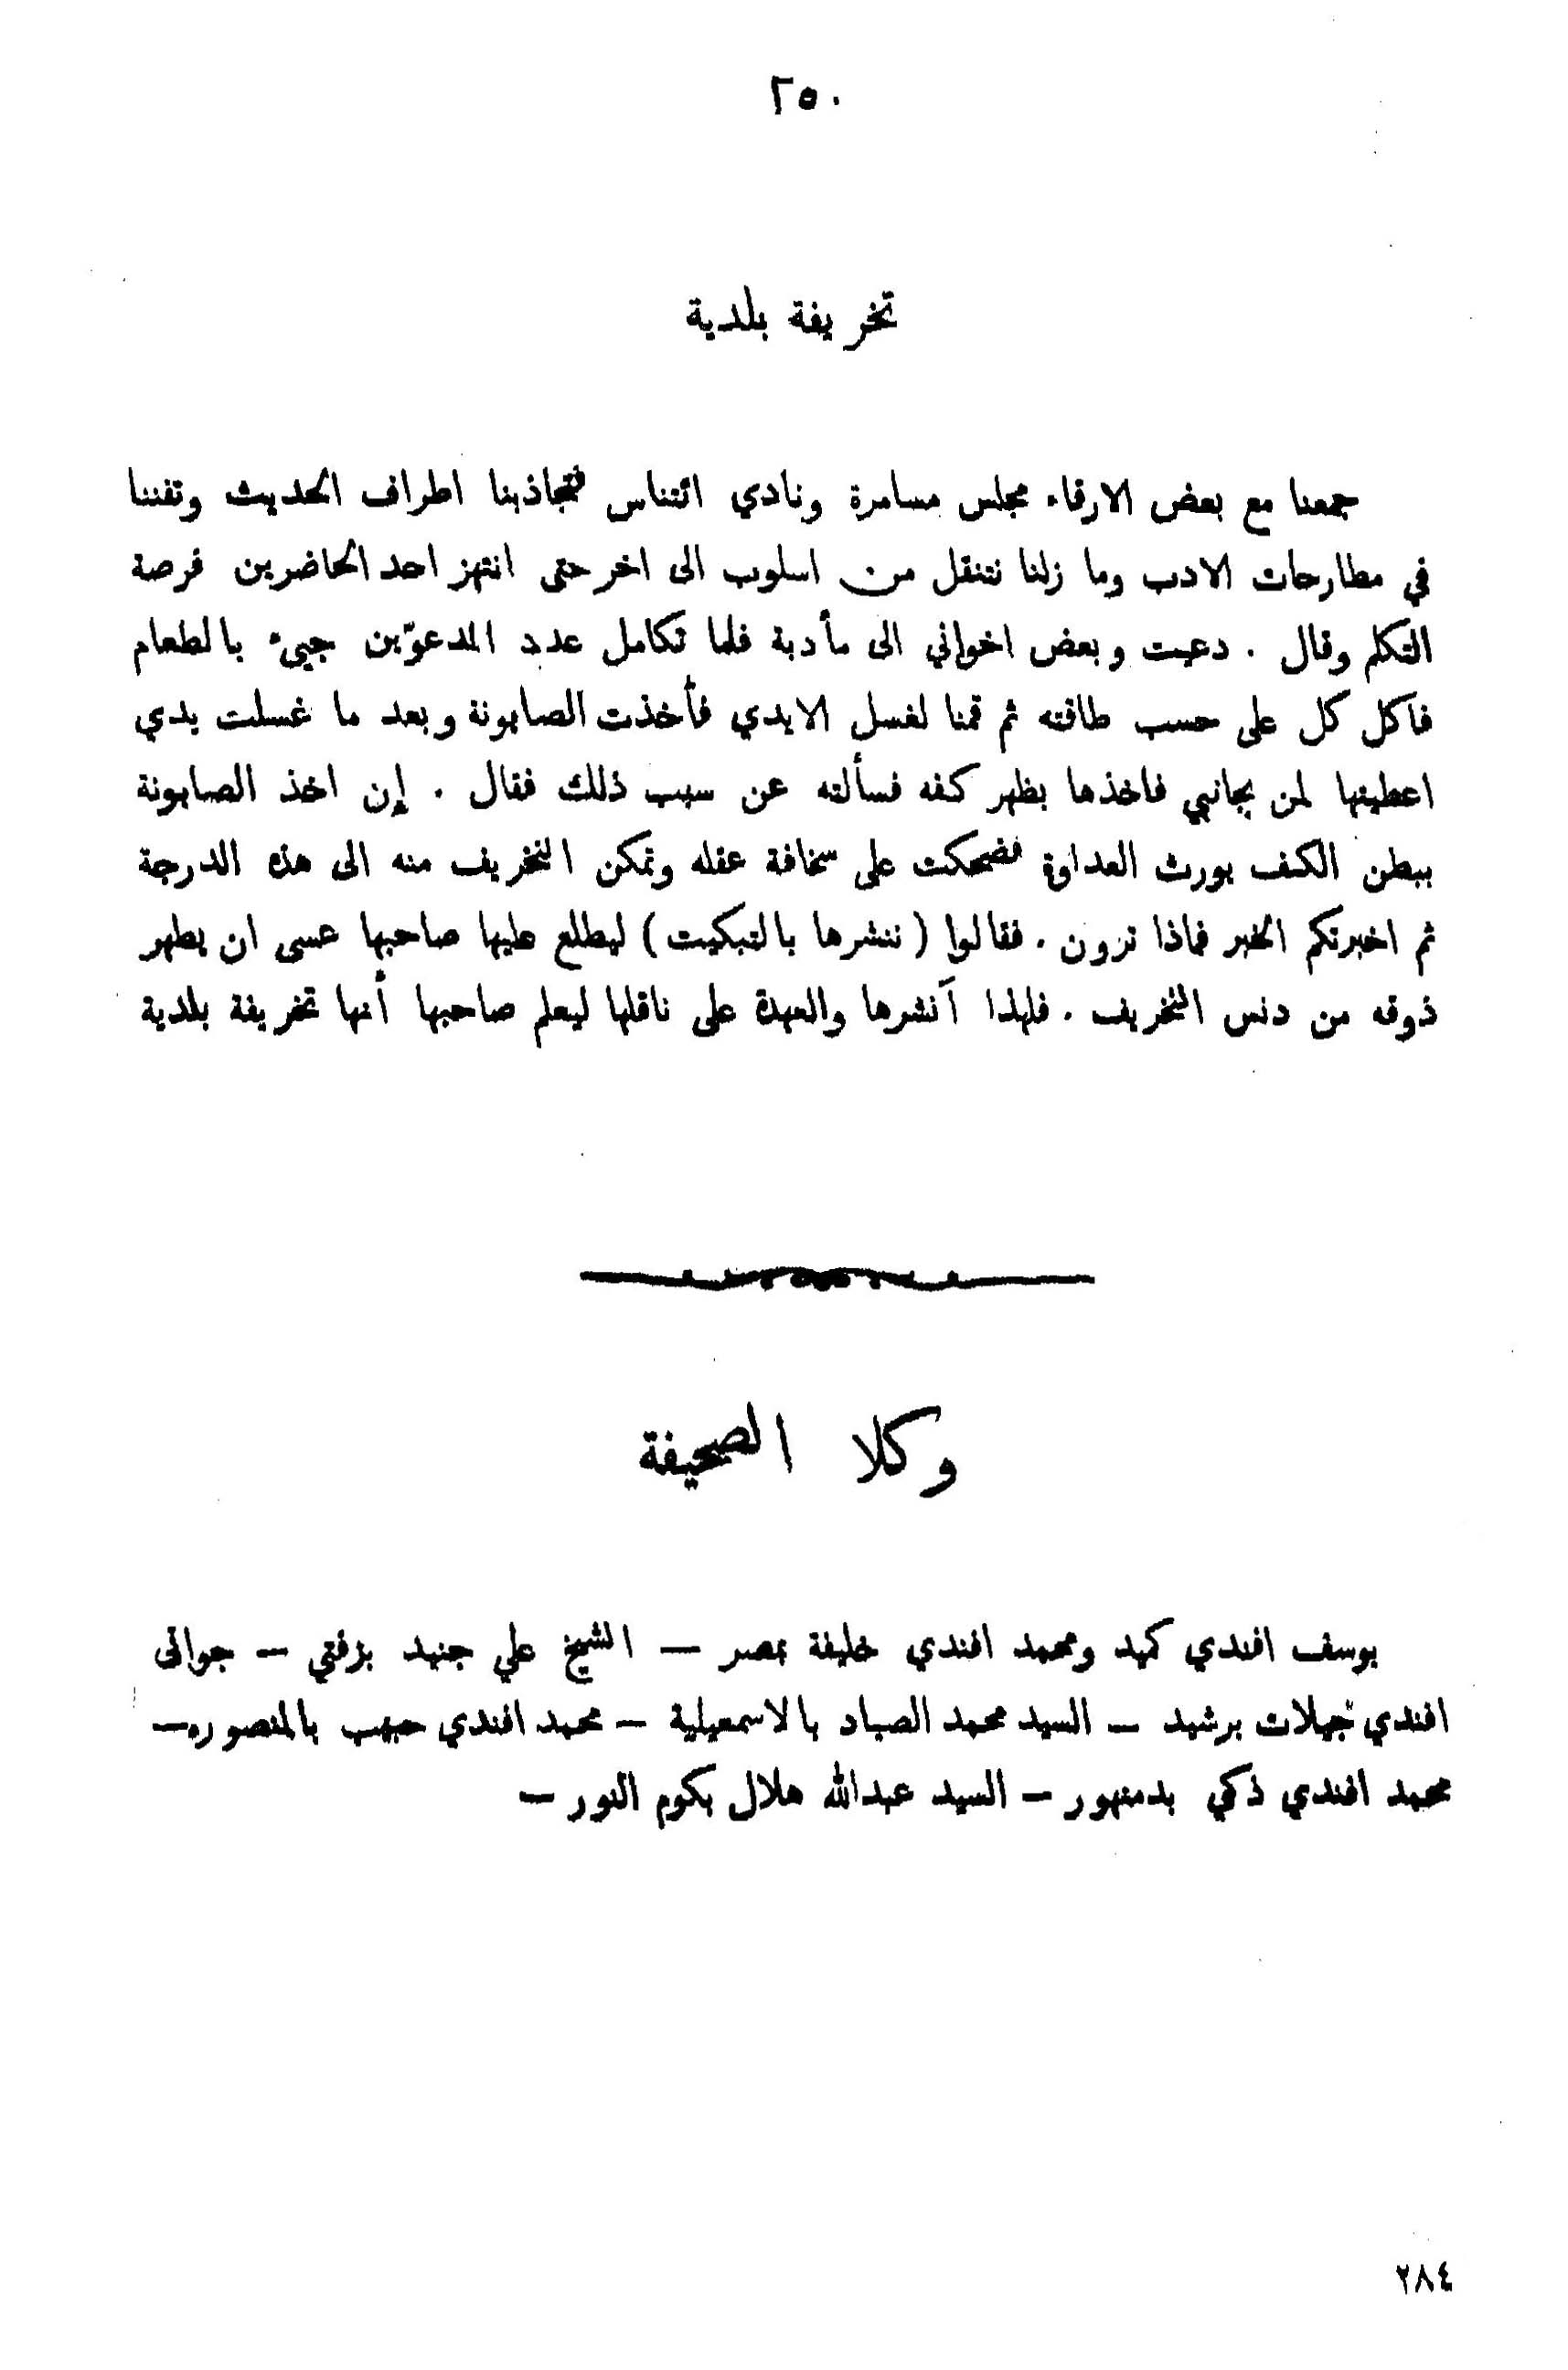 ٢٥٠
تخريفة بلدية
جمعنا مع بعض الارقاء مجلس مسامرة ونادي ائتناس فتجاذبنا اطراف الحديث وتفننا
في مطارحات الادب وما زلنا نتنقل من اسلوب الى اخر حتى انتهز احد الحاضرين فرصة
التكلم وقال . دعيت وبعض اخواني الى مأدبة فلما تكامل عدد المدعوّين جيىء بالطعام
فاكل كل على حسب طاقته ثم قمنا لغسل الايدي فأخذت الصابونة وبعد ما غسلت يدي
اعطيتها لمن بجانبي فاخذها بظهر كفه فسألته عن سبب ذلك فقال . إن اخذ الصابونة
ببطن الكف يورث العداوة فضحكت على سخافة عقله وتمكن التخريف منه الى هذه الدرجة
ثم اخبرتكم الخبر فماذا ترون . فقالوا ( ننشرها بالتبكيت ) ليطلع عليها صاحبها عسى ان يطهر
ذوقه من دنس التخريف . فلهذا آنشرها والعهدة على ناقلها ليعلم صاحبها أنها تخريفة بلدية
وكلا الصحيفة
يوسف افندي كميد ومحمد افندي خليفة بمصر — الشيخ علي جنيد بزفتي — جواني
افندي جيلات برشيد — السيد محمد الصياد بالاسمعيلية — محمد افندي حبيب بالمنصوره—
محمد افندي ذكي بدمنهور — السيد عبدالله هلال بكوم النور —
٢٨٤